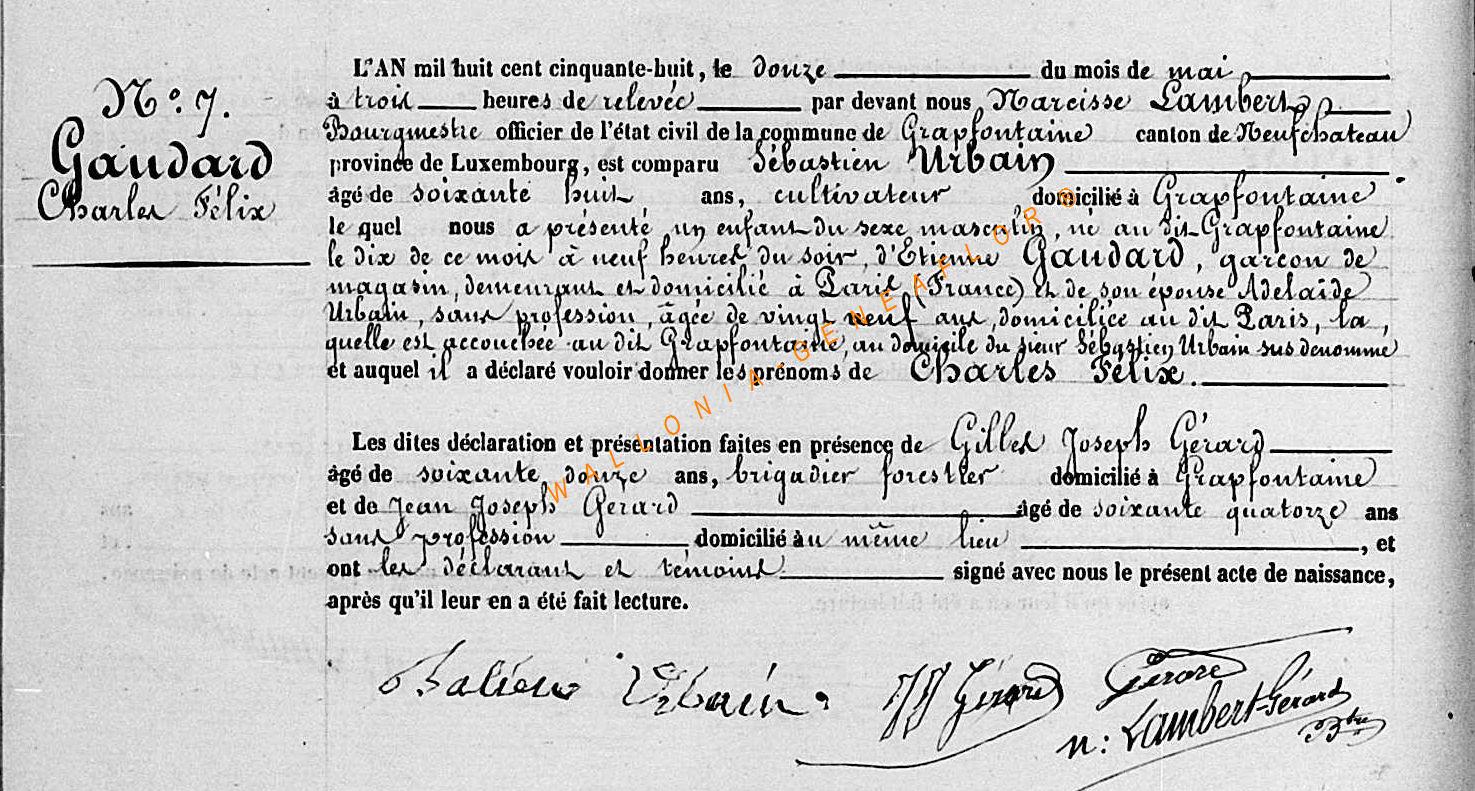 N.o 7.
Gaudard
Charles Félix
L'AN mil huit cent cinquante-huit, le douze du mois de mai
à trois heures de relevée par devant nous Narcisse Lambert
Bourgmestre officier de l'état civil de la commune de Grapfontaine canton de Neufchateau
province de Luxembourg, est comparu Sébastien Urbain
âgé de soixante huit ans, cultivateur domicilié à Grapfontaine
le quel nous a présenté un enfant du sexe masculin, né au dit Grapfontaine
le dix de ce mois à neuf heures du soir, d'Etienne Gaudard, garcon de
magasin, demeurant et domicilié à Paris (France) et de son épouse Adelaïde
Urbain, sans profession, âgée de vingt neuf ans, domiciliée au dit Paris, la,
quelle est accouchée au dit Grapfontaine, au domicile du sieur Sébastien Urbain sus denommé
et auquel il a déclaré vouloir donner les prénoms de Charles Félix.
Les dites déclaration et présentation faites en présence de Gilles Joseph Gérard
âgé de soixante douze ans, brigadier forestier domicilié à Grapfontaine
et de Jean Joseph Gérard âgé de soixante quatorze ans
sans profession domicilié au même lieu, et
ont les déclarant et témoins signé avec nous le présent acte de naissance,
après qu'il leur en a été fait lecture.
Urbain JJ Gérard Gérard
n: Lambert-Gérard
Btre
WALLONIA-GENEAFLOR©